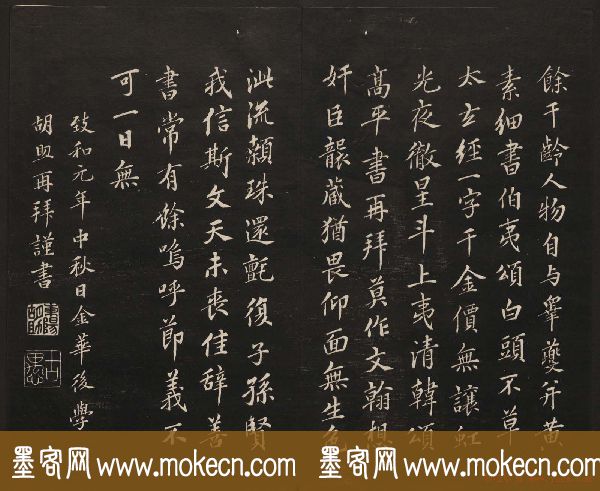 餘千齡人物自与皋夔並黄
素细書伯夷頌白頭不草
太玄經一字千金價無讓虹
光夜徹呈斗上夷清韓頌
高平書再拜莫作文翰想
奸臣襲蔵猶畏仰面無生色
泚流顙珠還氈復子孫賢
我信斯文天未喪佳辞善
書常有餘嗚呼節義不
可一日無
致和元年中秋日金華後學
胡助再拜謹書
墨客网 www.mokecn.com 墨客网 www.mokecn.com